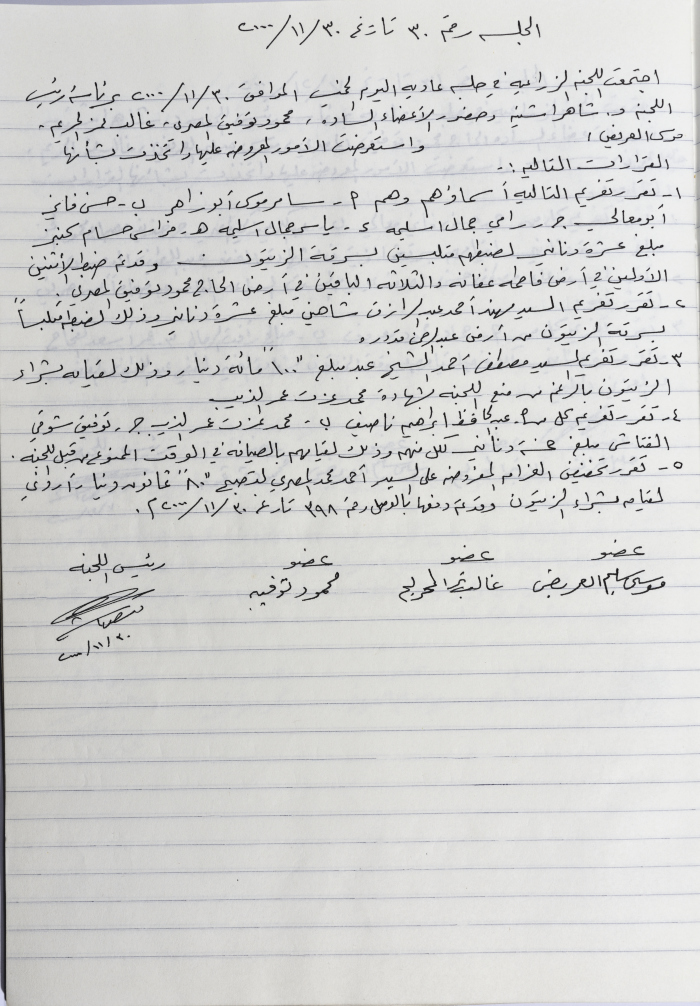 الجلسه رقم ٣٠ تاريخ ٣٠/١١/٢٠٠٠
اجتمعت اللجنه الزراعيه في جلسه عاديه اليوم الخميس الموافق ٣٠/١١/٢٠٠٠ برئاسة رئيس
اللجنه د. شاهر اشتيه وحضور الأعضاء الساده، محمود توفيق المصري، غالب
موسى العريض، واستعرضت الأمور المعروضه عليها واتخذت بشأنها
القرارات التاليه:-
١- تقرر تغريم التاليه أسماؤهم وهم أ- سامر موسى أبو زاهر ب- حسن فايز
أبو معالي جـ- رامي جمال اسليمه د- ياسر جمال اسليمه هـ- فراس حسام
مبلغ عشرة دنانير لضبطهم متلبسين بسرقة الزيتون وقد تم ضبط الأثنين
الأولين في أرض فاطمه عفانه والثلاثه الباقين في أرض الحاج محمود توفيق المصري.
٢- تقرر تغريم السيد مهند أحمد عبد الرازق شاهين مبلغ عشرة دنانير وذلك لضبطه متلبساً
بسرقة الزيتون من أرض
٣- تقرر تغريم السيد مصطفى أحمد الشيخ عبد مبلغ "١٠٠" مائة دينار وذلك لقيامه بشراء
الزيتون بالرغم من منع اللجنه لشهادة محمد عزت عمر الذيب
٤- تقرر تغريم كل من أ- عبد الحافظ ابراهيم ناصيف ب- محمد عزت عمر الذيب جـ- توفيق شوقي
مبلغ خمسة دنانير لكل منهم وذلك لقيامهم بالصيافه في الوقت الممنوع من قبل اللجنه.
٥- تقرر تخفيض الغرامه المفروضه على السيد أحمد محمد المصري لتصبح "٨٠" ثمانون دينار أردني
لقيامه بشراء الزيتون وقد تم دفعها بالوصل رقم ٣٩٨ تاريخ ٣٠/١١/٢٠٠٠م.
عضو عضو عضو رئيس اللجنه
موسى سليم العريض غالب محمود توفيق
٣٠/١١/٢٠٠٠